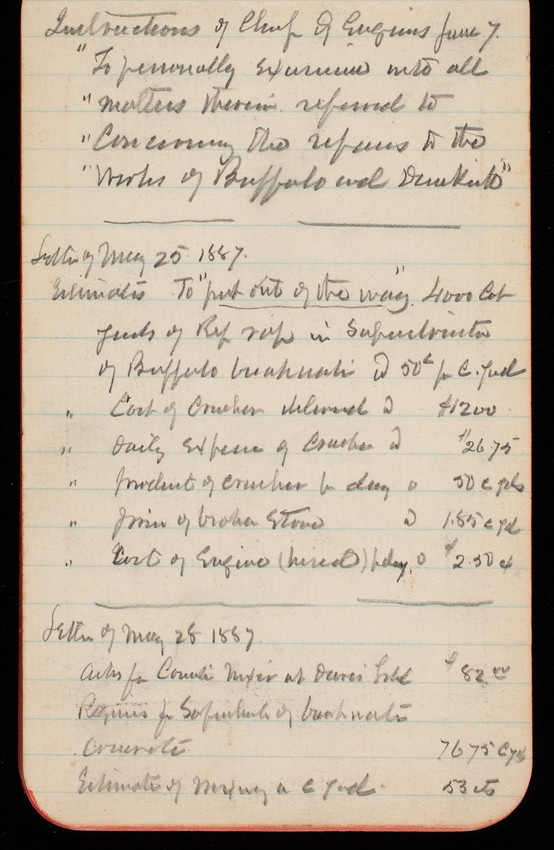 Instructions of Chief of Engins June 7.
"To personally examine into all
"matters therein referred to
"Concerning the repairs to the
"Works of Buffalo and Dunkirk"
Letter of May 25 1887.
Estimates To "put out of the way" 4000 Cub
yards of Rip rap in Superstructure
of Buffalo breakwater @ 50c pr C. yard
" Cost of Crusher delivered @ $1200
" Daily Expense of Crusher @ $26 75
" product of crusher pr day @ 50 c yds
" price of broken Stone @ 1.85 c yd
" Cost of Engine (hired) pr day @ $2.50
Letter of May 28 1887
asks for Mixer at $82 00
Requires for Superstructure of breakwater
Concrete 7675 C yds
Estimate of Mixing a c yard. 53 cts